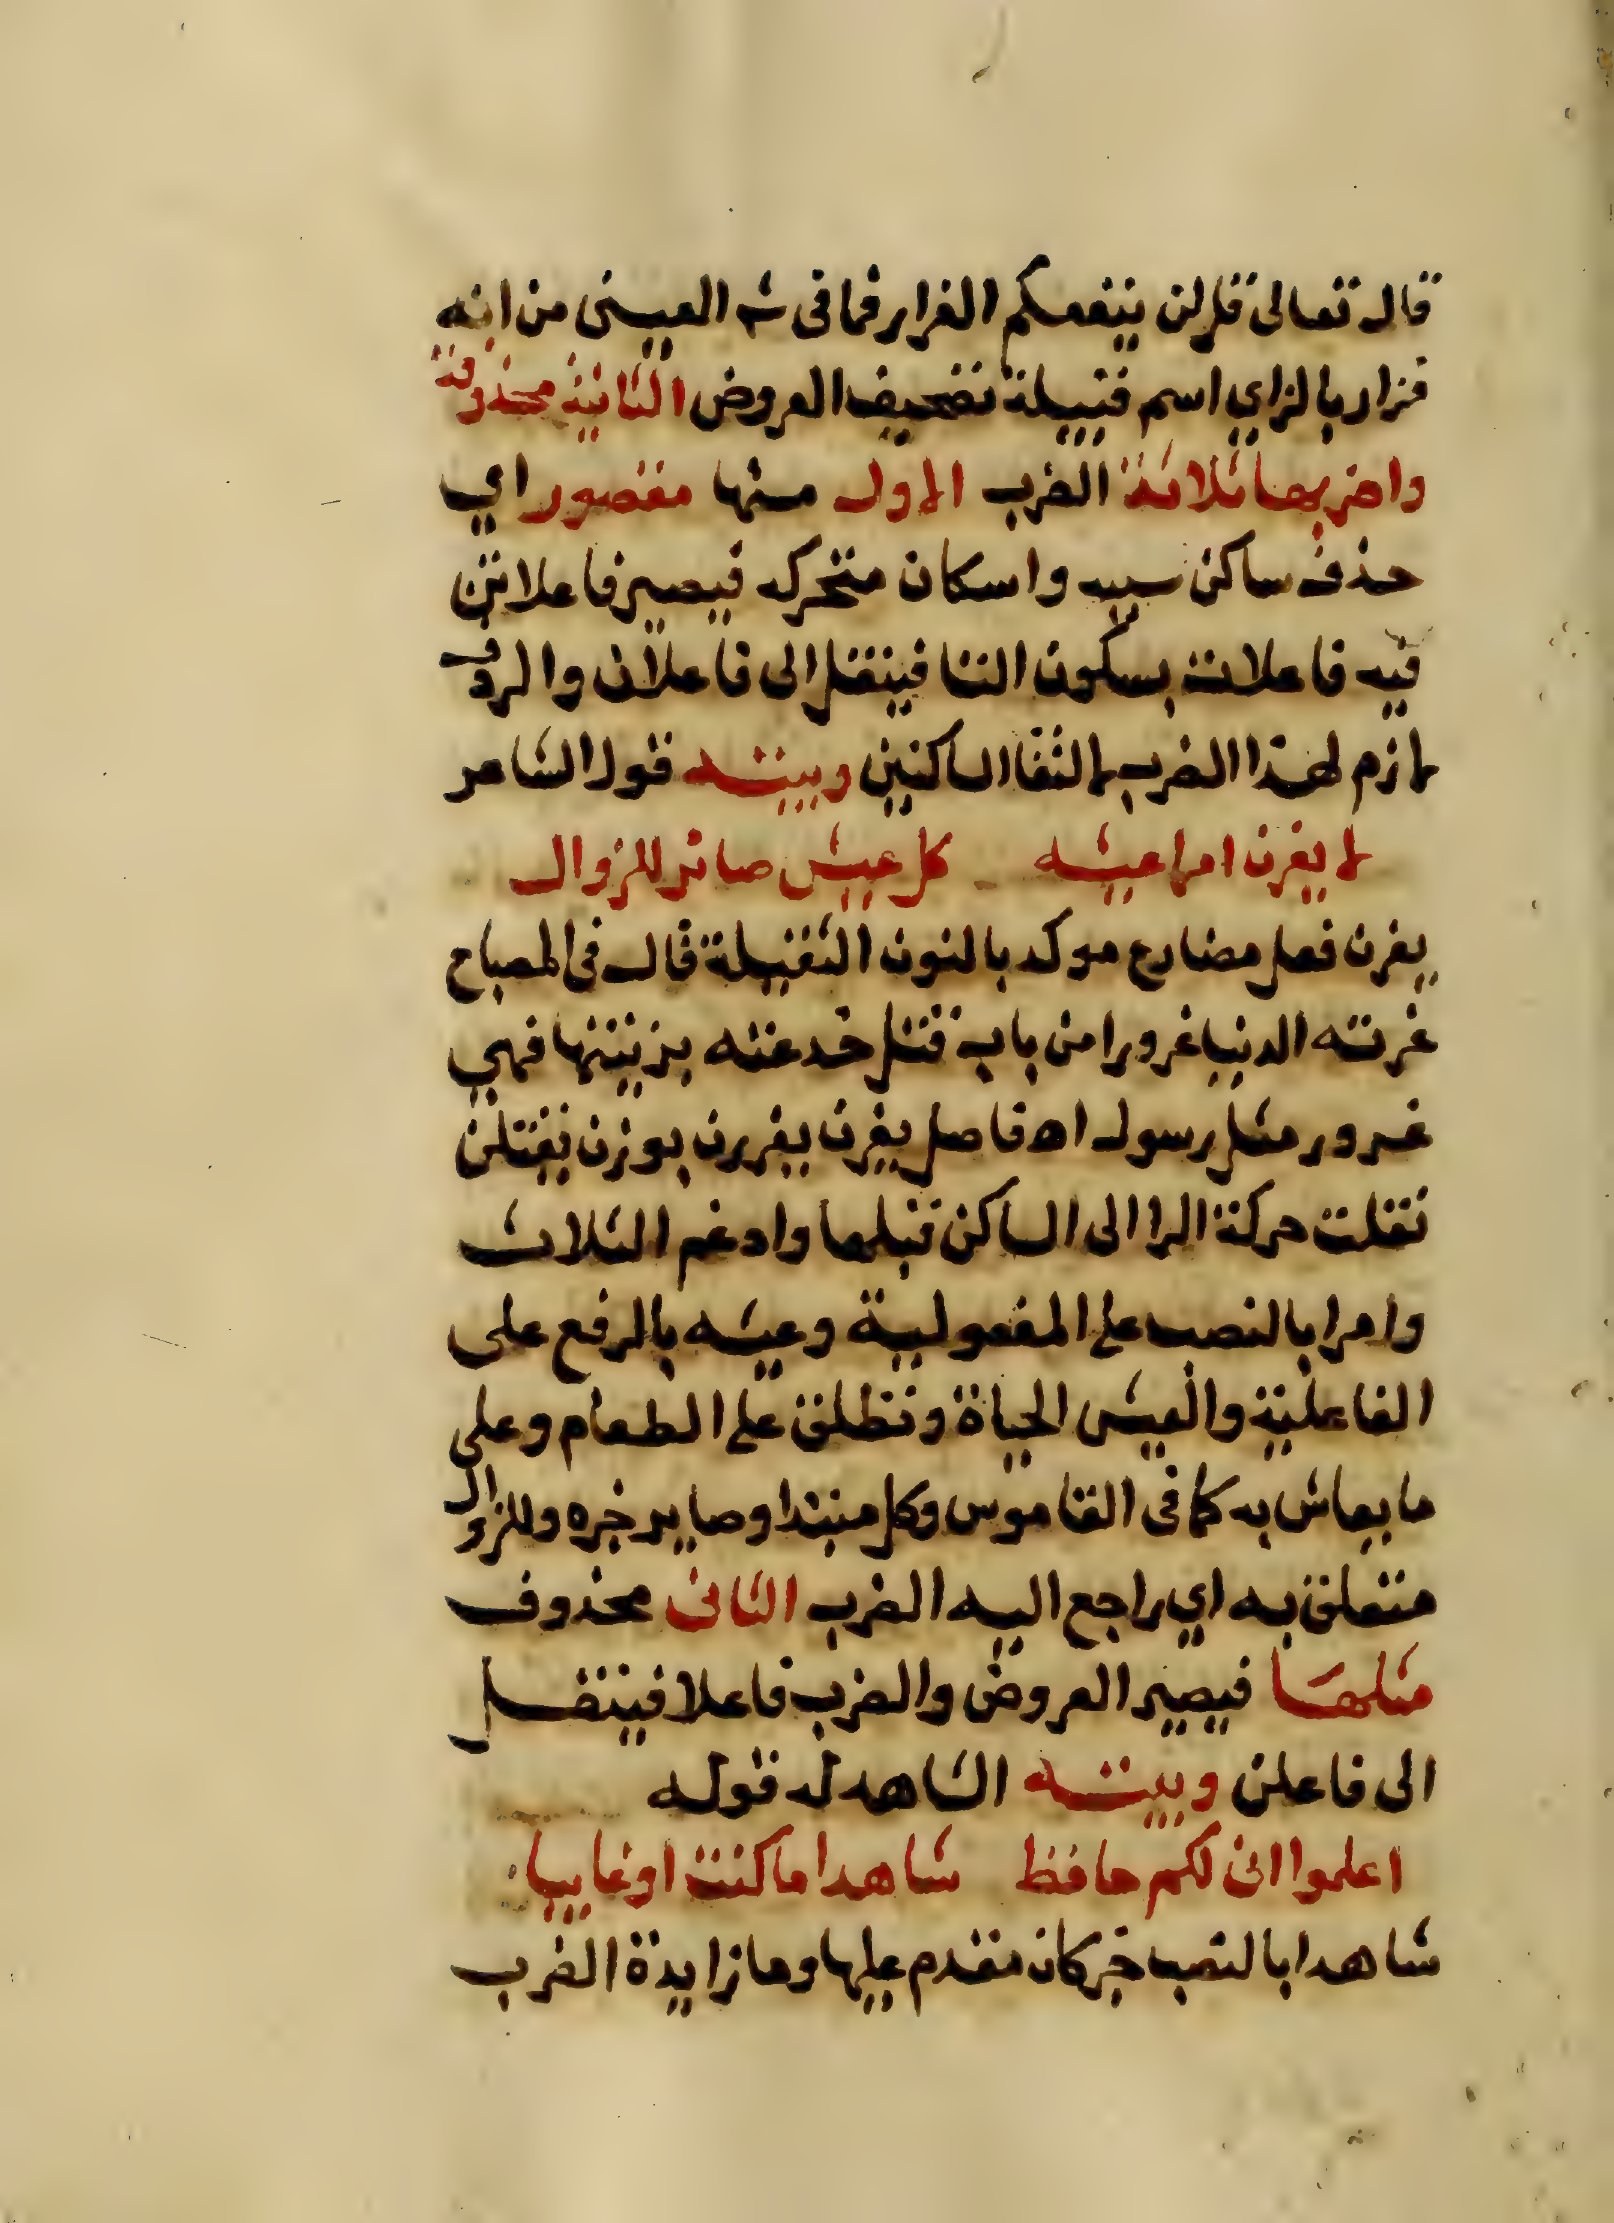 قال تعالى قل لن ينفعكم الفرار فما فى شرح العينى من انه
فزار بالزاي اسم قبيلة تصحيف العروض الثانية محذوفة
واضربها ثلاثة الضرب الاول منها مقصور اي
حذف ساكن سببه واسكان متحركه فيصير فاعلاتن
فيه فاعلات بسكون التا فينقل الى فاعلان والردف
لازم لهذا الضرب لالتقا الساكنين وبيته قول الشاعر
لا يغرن امرا عيشه كل عيش صائر للزوال
يغرن فعل مضارع موكد بالنون الثقيلة قال فى المصباح
غرته الدنيا غرورا من باب قتل خدعته بزينتها فهي
غرور مثل رسول اه فاصل يغرن يغررن بوزن يقتلن
نقلت حركة الرا الى الساكن قبلها وادغم الثلاث
وامرا بالنصب على المفعولية وعيشه بالرفع على
الفاعلية والعيش الحياة وتطلق على الطعام وعلى
ما يعاش به كما فى القاموس وكل مبتدا وصاير خبره وللزوال
متعلق به اي راجع اليه الضرب الثانى محذوف
مثلها فيصير العروض والضرب فاعلا فينقل
الى فاعلن وبيته الشاهد له قوله
اعلموا انى لكم حافظ شاهدا ما كنت او غايبا
شاهدا بالنصب خبر كان مقدم عليها وما زايدة الضرب